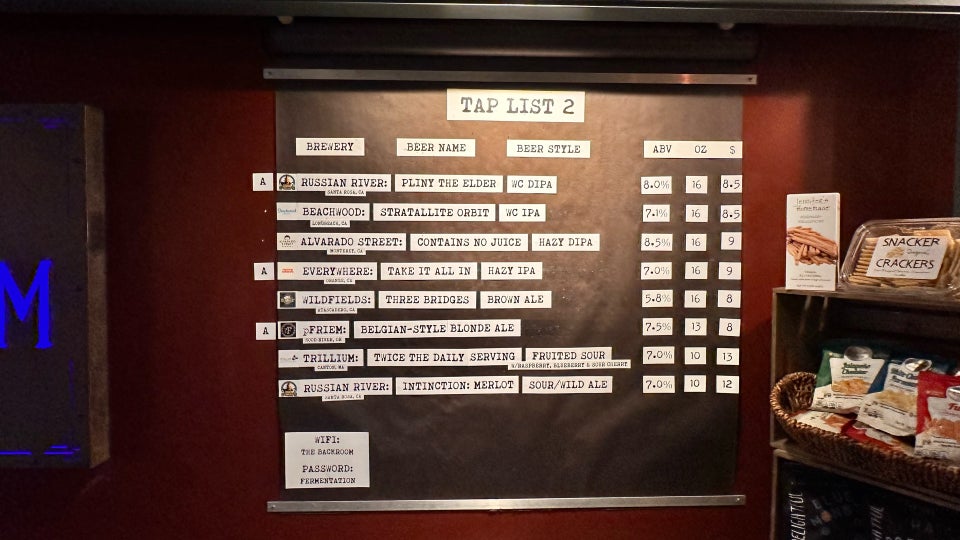 TAP LIST 2
BREWERY BEER NAME BEER STYLE ABV OZ $
A RUSSIAN RIVER: PLINY THE ELDER WC DIPA 8.0% 16 8.5
SANTA ROSA, CA
BEACHWOOD: STRATALLITE ORBIT WC IPA 7.1% 16 8.5
LONGBEACH, CA
ALVARADO STREET: CONTAINS NO JUICE HAZY DIPA 8.5% 16 9
MONTEREY, CA
A EVERYWHERE: TAKE IT ALL IN HAZY IPA 7.0% 16 9
ORANGE, CA
WILDFIELDS: THREE BRIDGES BROWN ALE 5.8% 16 8
ATASCADERO, CA
A pFRIEM: BELGIAN-STYLE BLONDE ALE 7.5% 13 8
HOOD RIVER, OR
TRILLIUM: TWICE THE DAILY SERVING FRUITED SOUR 7.0% 10 13
CANTON, MA W/RASPBERRY, BLUEBERRY & SOUR CHERRY
RUSSIAN RIVER: INTINCTION: MERLOT SOUR/WILD ALE 7.0% 10 12
SANTA ROSA, CA
WIFI:
THE BACKROOM
PASSWORD:
FERMENTATION
M
SNACKER
CRACKERS